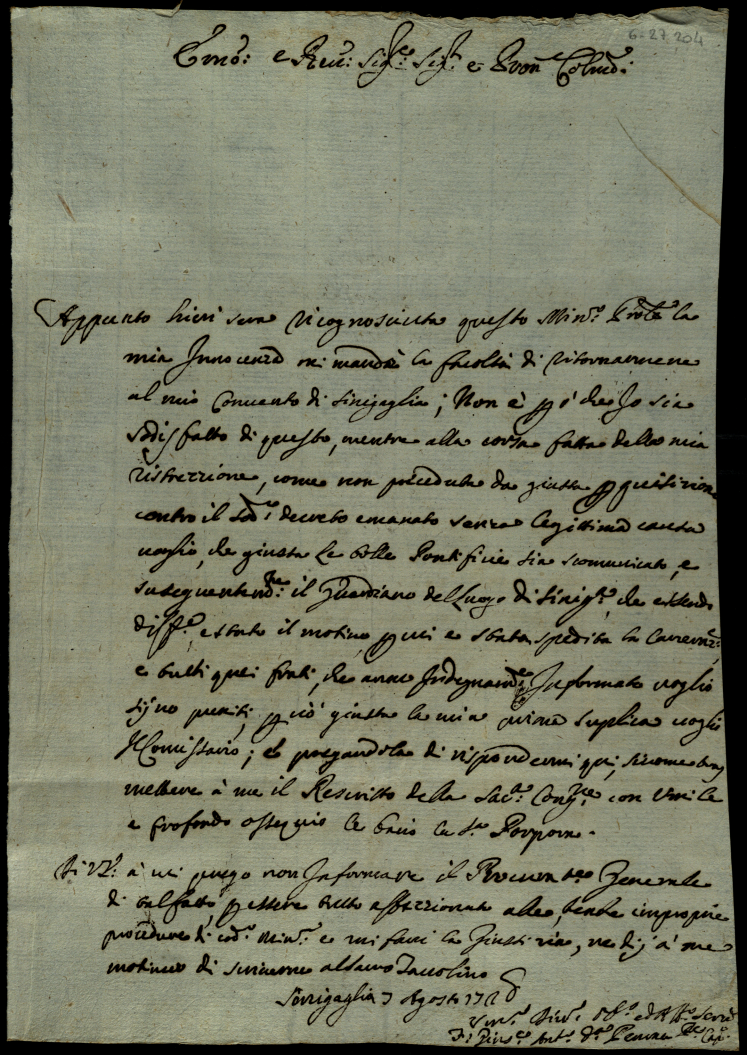 6-27 204
Emo: e Rev: Sig.re Sig.r e Pron Colmo:
Appunto hieri sera ricognosciuta questo Min.o Prole la
mia Innocenza mi mandò la facoltà di ritornarmene
al mio Convento di Sinigaglia; Non è p o' che Io sia
sodisfatto di questo, mentre alla corsa fatta della mia
ristrezzione, come non preceduta da giusta pquisizione
contro il sod.o decreto emanato senza legittima causa
voglio, che giusta le bolle Pontificie sia scomunicato, e
susequentem.te il Guardiano del Luogo di Sinig.a, che essendo
diff.e, e stato il motivo, p cui e stata spedita la
e tutti quei frati, che anno Indegnam.te Informato voglio
sijno puniti, p ciò giusta la mia suplica voglio
Il Comissario; e pregandola di rispondermi qui, siccome
mettere à me il Rescritto della Sac.a Cong.ne con umile
e profondo ossequio le bacio la S.a Porpora.
Di V.E. à cui priego non Informare il Procurat.re Generale
di tal fatto, p essere tutto affezzionato alle tante improprie
procedure di cod.o Min.o e mi facci la Giustizia, ne dij a' me
motivo di scriverne al
Sinigaglia 7 Agosto 17
Um.o Div.o Obl.o ed Serv.e
F. Ant.o Cap.o